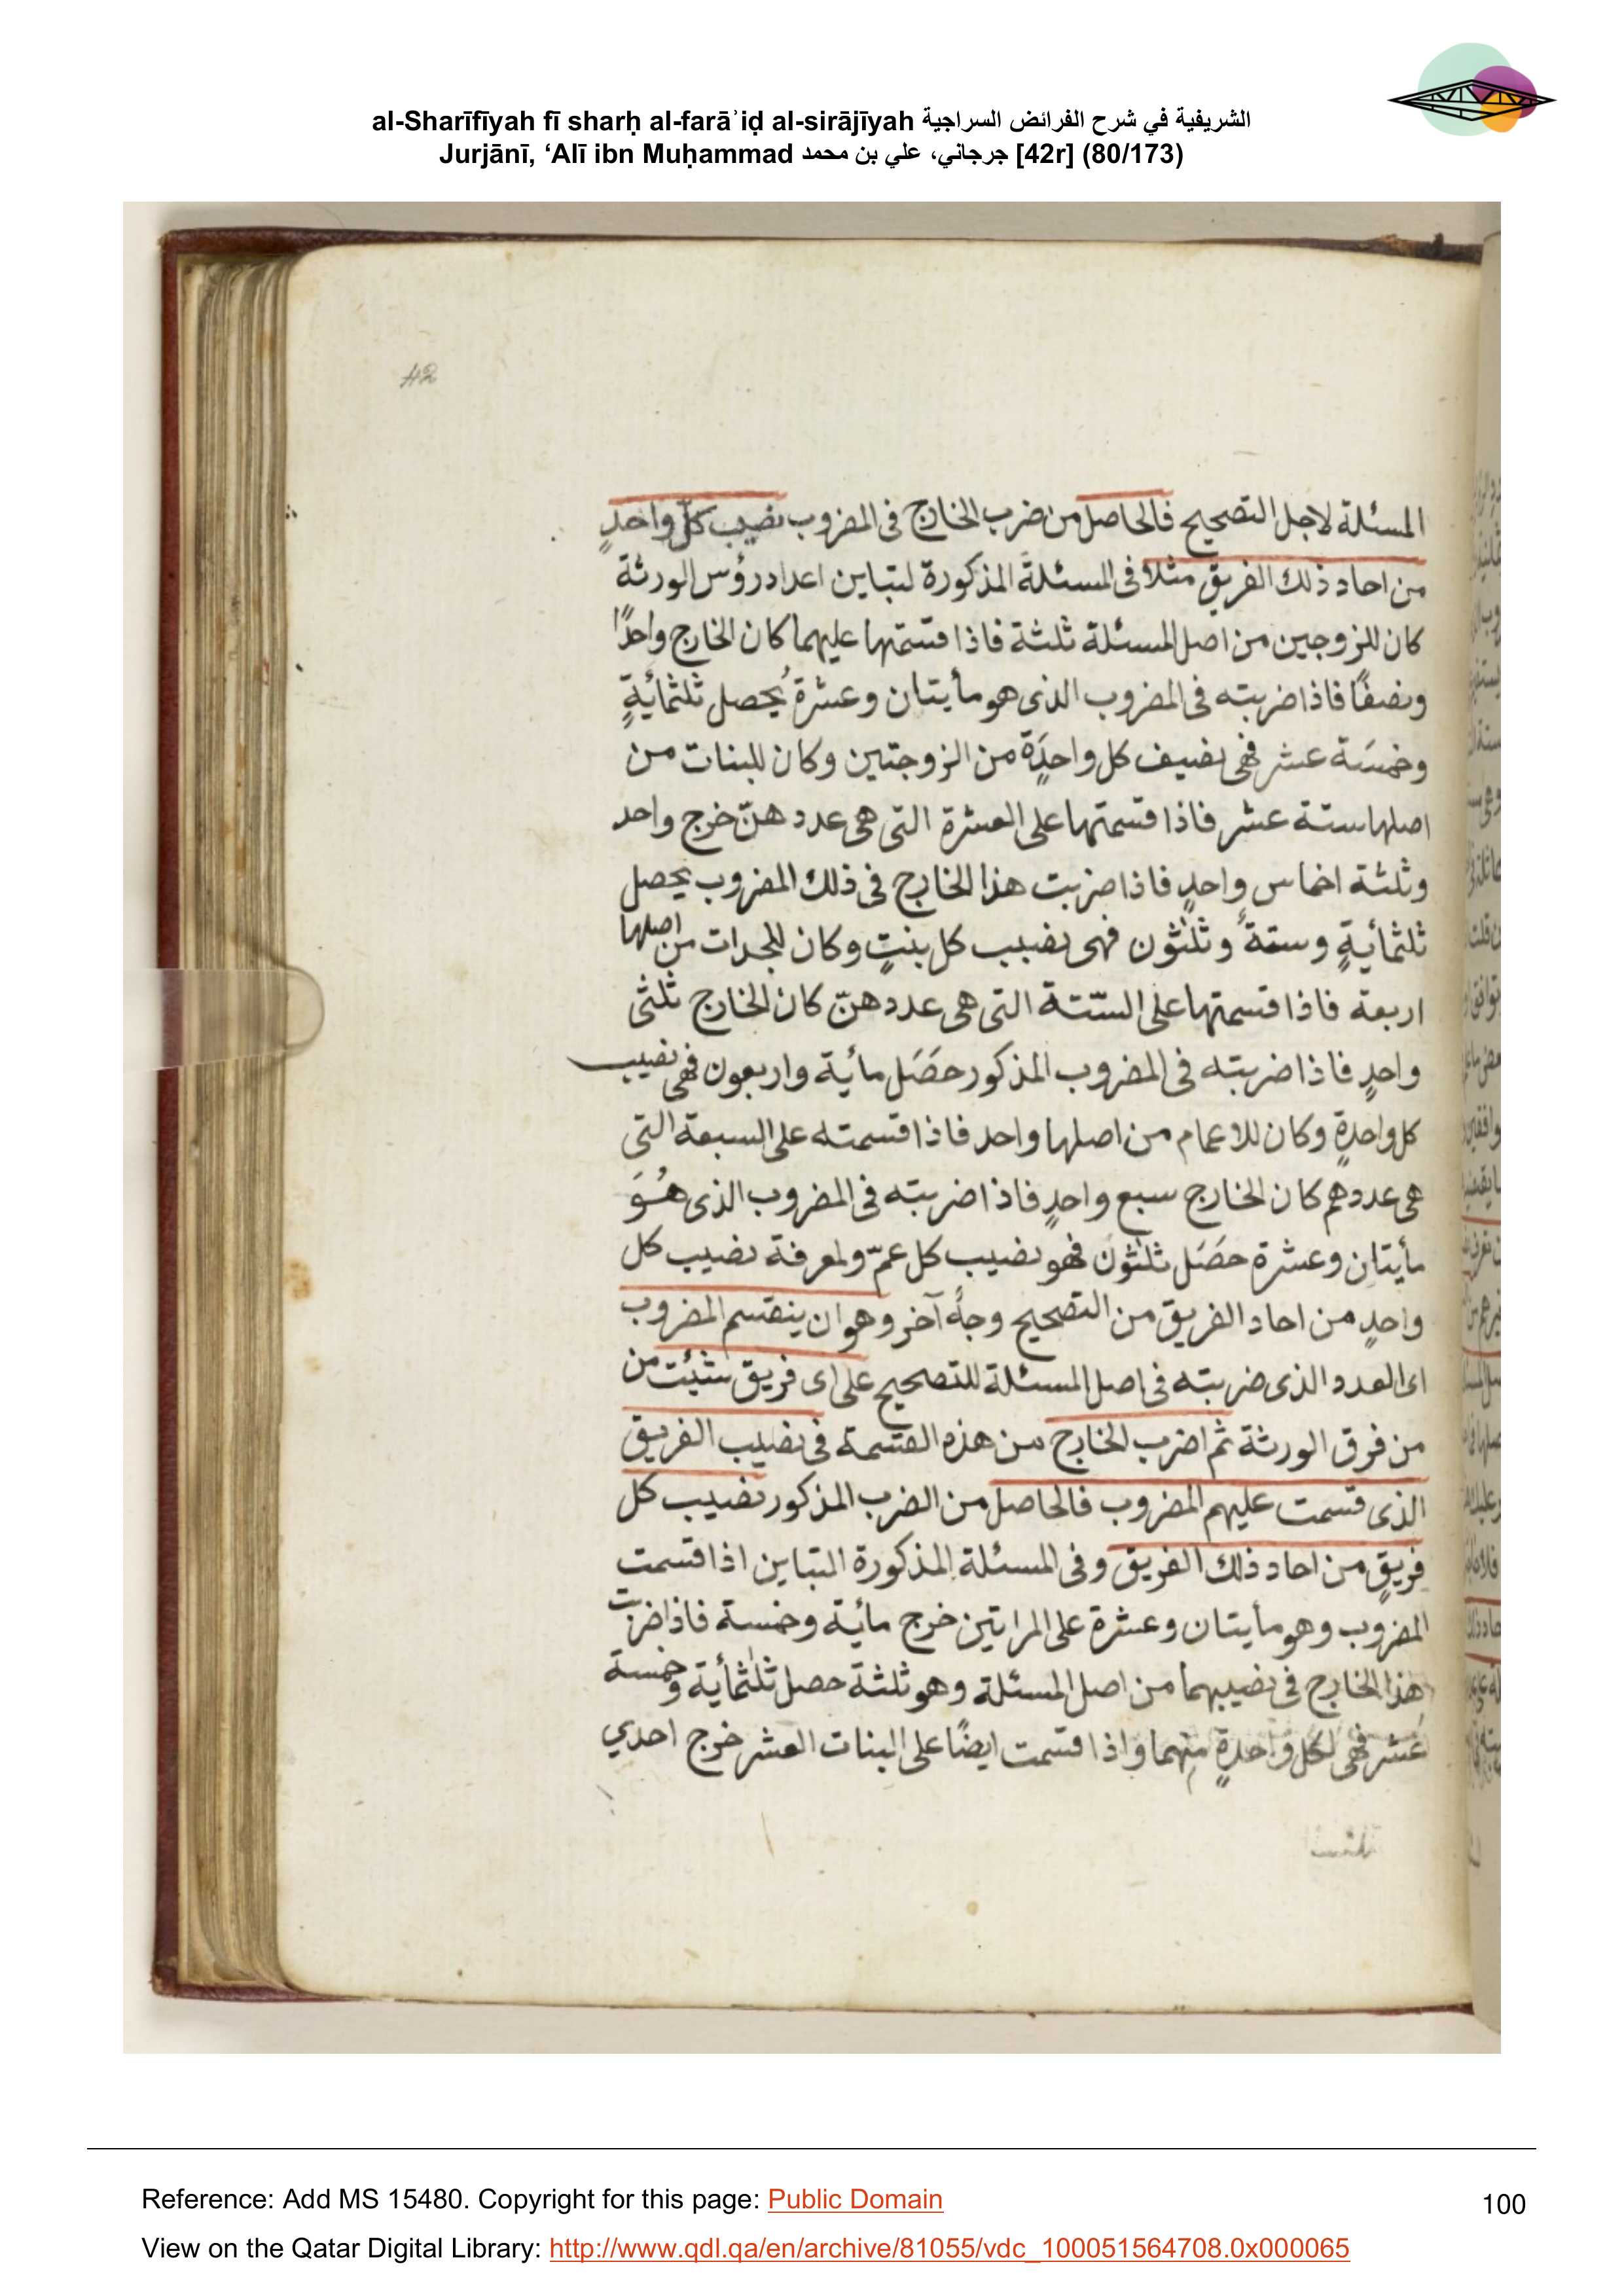 al-Sharīfīyah fī sharḥ al-farāʾiḍ al-sirājīyah الشريفية في شرح الفرائض السراجية
Jurjānī, ‘Alī ibn Muḥammad جرجاني، علي بن محمد [42r] (80/173)
42
المسئلة لاجل التصحيح فالحاصل من ضرب الخارج فى المضروب نصيب كلّ واحدٍ
من احاد ذلك الفريق مثلا فى المسئلة المذكورة لتباين اعداد رؤس الورثة
كان للزوجين من اصل المسئلة ثلثة فاذا قسمتها عليهما كان الخارج واحدًا
ونصفًا فاذا ضربته فى المضروب الذى هو مأيتان وعشرة يُحصل ثلثمائيةٍ
وخمسَة عشر فهى نضيف كل واحدٍَة من الزوجتين وكان للبنات من
اصلها ستة عشر فاذا قسمتها على العشرة التى هى عدد هنّ خرج واحد
وثلثة اخماس واحدٍ فاذا ضربت هذا الخارج فى ذلك المضروب يحصل
ثلثمائيةٍ وستةً وثلثون فهى نضيب كل بنتٍ وكان للجدات من اصلها
اربعة فاذا قسمتها على الستّة التى هى عدد هنّ كان الخارج ثلثى
واحدٍ فاذا ضربته فى المضروب المذكور حَصَل مائية واربعون فهى نصيب
كل واحدةٍ وكان للاعمام من اصلها واحد فاذا قسمته على السبعة التى
هى عددهم كان الخارج سبع واحدٍ فاذا ضربته فى المضروب الذى هُوَ
مأيتان وعشرة حَصَل ثلثون فهو نضيب كل عمّ ولمعرفة نضيب كل
واحدٍ من احاد الفريق من التصحيح وجهٌ آخر وهو ان ينقسم المضروب
اى العدد الذى ضربته فى اصل المسئلة للتصحيح على اى فريق شئت من
من فرق الورثة ثم اضرب الخارج من هذه القسمة فى نضيب الفريق
الذى قسمت عليهم المضروب فالحاصل من الضرب المذكور نضيب كل
فريقٍ من احاد ذلك الفريق وفى المسئلة المذكورة التباين اذا قسمت
المضروب وهو مأيتان وعشرة على المراتين خرج مائية وخمسة فاذا ضربت
هذا الخارج فى نضيبهما من اصل المسئلة وهو ثلثة حصل ثلثمأية وخمسة
عشر فهى لكل واحدةٍ منهما واذا قسمت ايضًا على البنات العشر خرج احدي
Reference: Add MS 15480. Copyright for this page: Public Domain
100
View on the Qatar Digital Library: http://www.qdl.qa/en/archive/81055/vdc_100051564708.0x000065